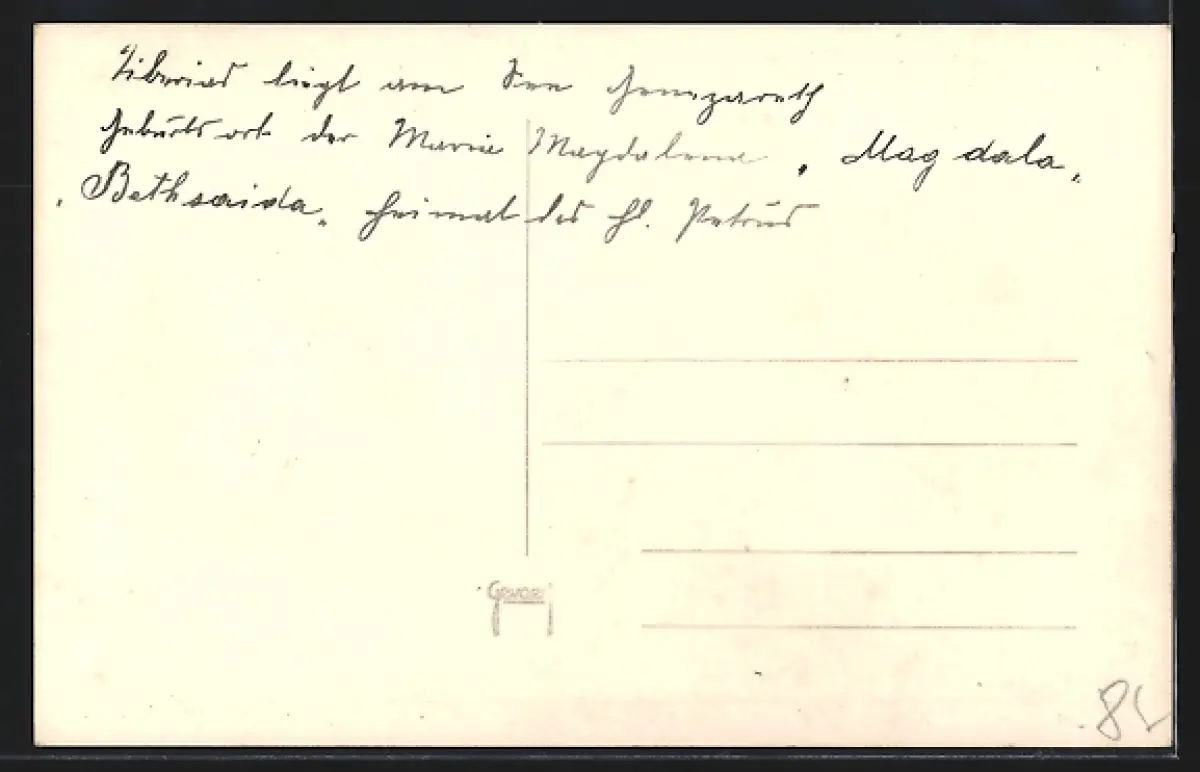 Tiberias liegt am See Genezareth
Geburtsort der Maria Magdalena „Magdala"
„Bethsaida" Heimat des hl. Petrus
Gevaert